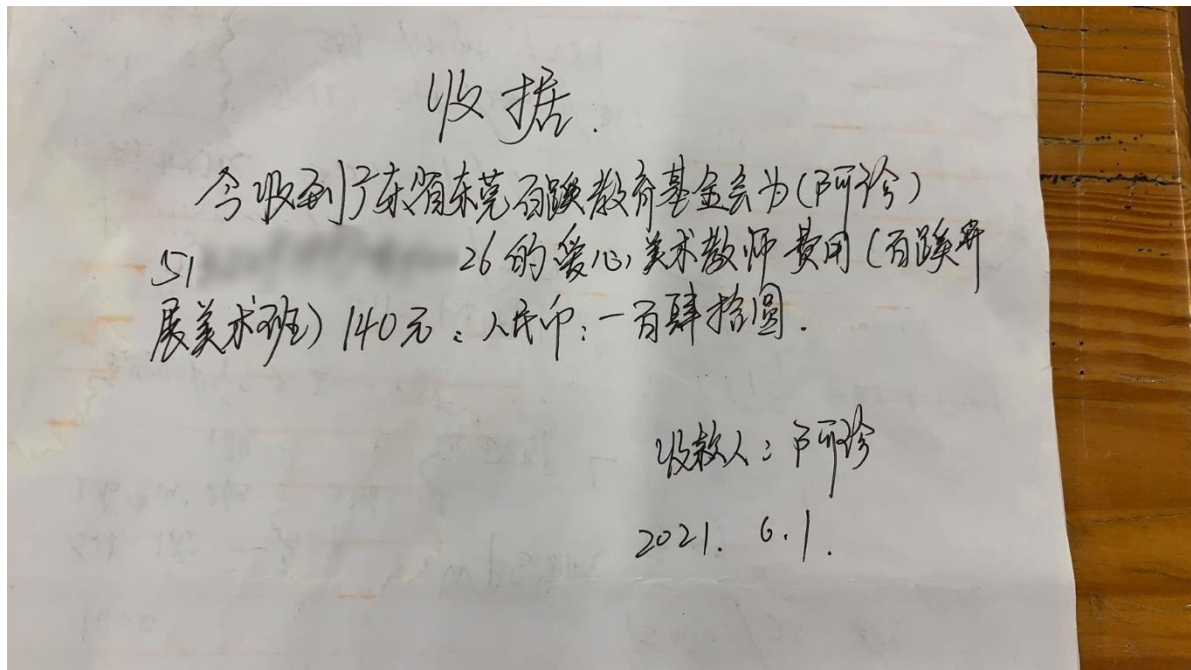 收据.
今收到广东省东莞百蹊教育基金会为(阿诊)
51 26的爱心美术教师费用(百蹊开
展美术班)140元:人民币:一百肆拾圆.
收款人:阿诊
2021.6.1.